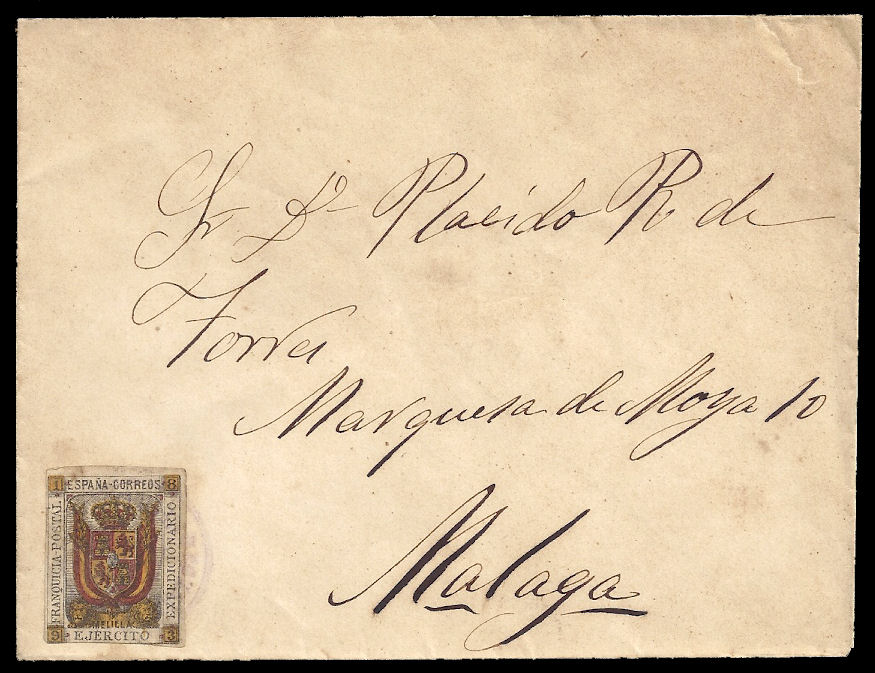 Sr Dn Placido R. de
Torres
Marquesa de Moya 10
Malaga
1 ESPAÑA-CORREOS 8
FRANQUICIA-POSTAL
EXPEDICIONARIO
MELILLA
9 EJÉRCITO 3